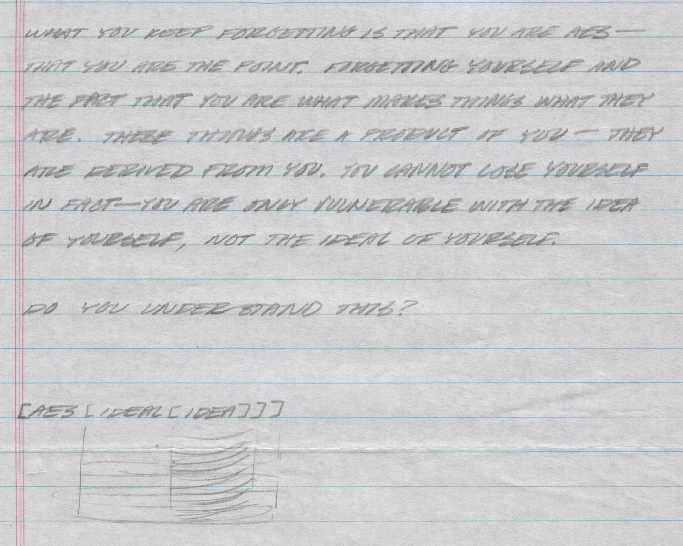 WHAT YOU KEEP FORGETTING IS THAT YOU ARE AE3—
THAT YOU ARE THE POINT. FORGETTING YOURSELF AND
THE FACT THAT YOU ARE WHAT MAKES THINGS WHAT THEY
ARE. THESE THINGS ARE A PRODUCT OF YOU — THEY
ARE DERIVED FROM YOU. YOU CANNOT LOSE YOURSELF
IN FACT—YOU ARE ONLY VULNERABLE WITH THE IDEA
OF YOURSELF, NOT THE IDEAL OF YOURSELF.
DO YOU UNDERSTAND THIS?
[AE3 [IDEAL [IDEA]]]